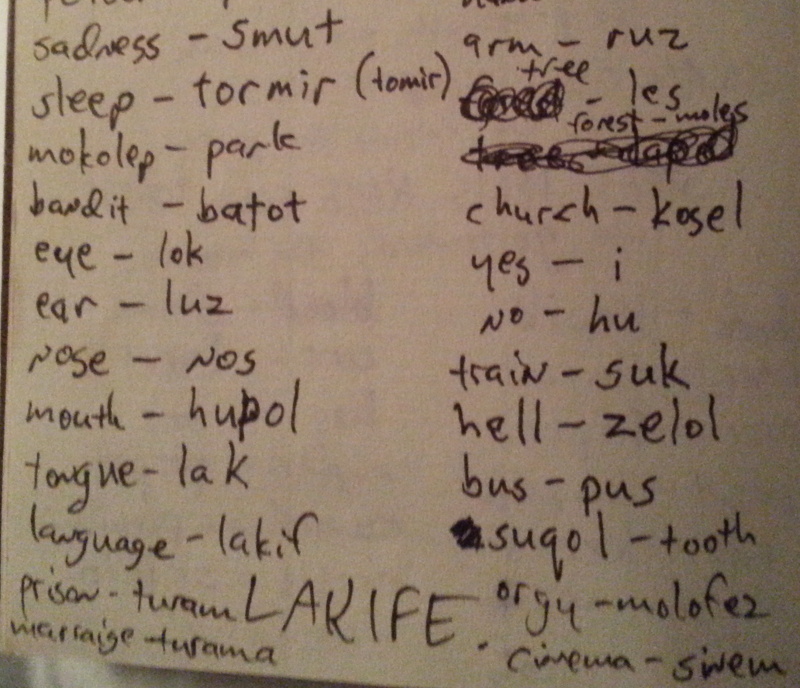 sadness - smut
sleep - tormir (tomir)
mokolep - park
bandit - batot
eye - lok
ear - luz
nose - nos
mouth - hupol
tongue - lak
language - lakif
prison - turam
marraige - turama
LAKIFE.
arm - ruz
tree - les
forest - moles
church - kosel
yes - i
no - hu
train - suk
hell - zelol
bus - pus
suqol - tooth
orgy - molofez
cinema - sinem